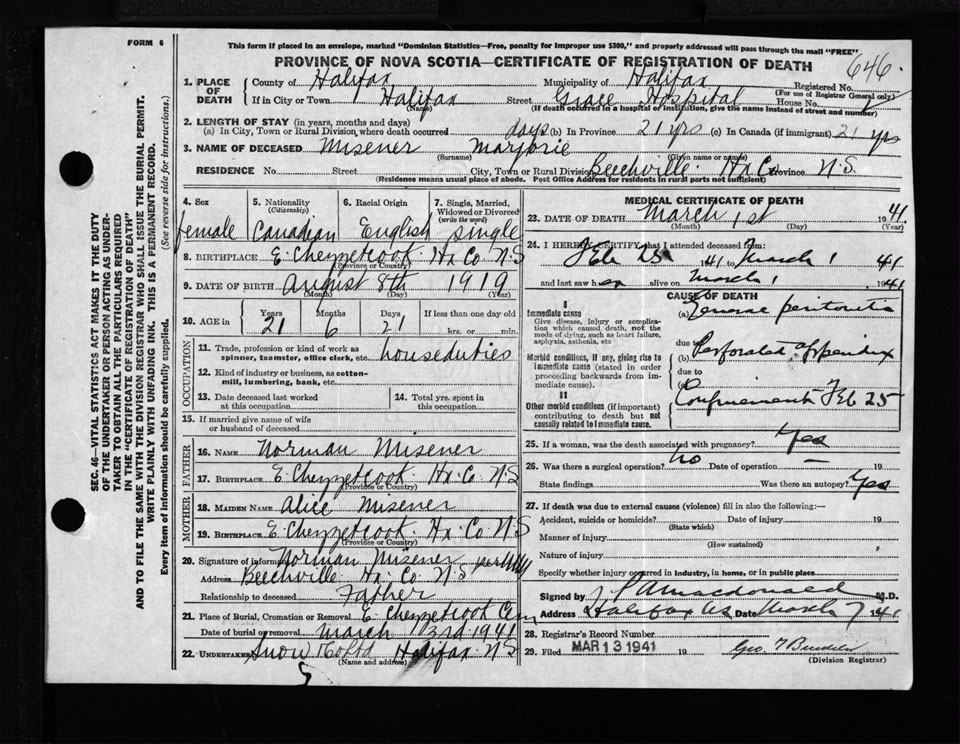 FORM 6
This form if placed in an envelope, marked "Dominion Statistics—Free, penalty for improper use $300," and properly addressed will pass through the mail "FREE"
PROVINCE OF NOVA SCOTIA—CERTIFICATE OF REGISTRATION OF DEATH 646.
1. PLACE OF DEATH
County of Halifax Municipality of Halifax Registered No.
(For use of Registrar General only)
If in City or Town Halifax Street Grace Hospital House No.
(Name) (If death occurred in a hospital or institution, give the name instead of street and number)
2. LENGTH OF STAY (in years, months and days)
(a) In City, Town or Rural Division, where death occurred days (b) In Province 21 yrs (c) In Canada (if immigrant) 21 yrs
3. NAME OF DECEASED Misener Marjorie
(Surname) (Given name or names)
RESIDENCE No. Street City, Town or Rural Division Beechville Hx Co. Province N.S.
(Residence means usual place of abode. Post Office Address for residents in rural parts not sufficient)
4. Sex female
5. Nationality (Citizenship) Canadian
6. Racial Origin English
7. Single, Married, Widowed or Divorced (write the word) single
8. BIRTHPLACE E. Chezzetcook Hx Co N.S
(Province or Country)
9. DATE OF BIRTH August 8th 1919
(Month) (Day) (Year)
10. AGE in Years 21 Months 6 Days 21 If less than one day old hrs. or min.
OCCUPATION
11. Trade, profession or kind of work as spinner, teamster, office clerk, etc. houseduties
12. Kind of industry or business, as cotton-mill, lumbering, bank, etc.
13. Date deceased last worked at this occupation
14. Total yrs. spent in this occupation
15. If married give name of wife or husband of deceased
FATHER
16. NAME Norman Misener
17. BIRTHPLACE E. Chezzetcook Hx. Co. N.S
(Province or Country)
MOTHER
18. MAIDEN NAME Alice Misener
19. BIRTHPLACE E. Chezzetcook Hx Co N.S
(Province or Country)
20. Signature of informant Norman Misener per
Address Beechville Hx. Co. N.S
Relationship to deceased Father
21. Place of Burial, Cremation or Removal E. Chezzetcook Cem
Date of burial or removal March 3rd 1941
22. UNDERTAKER Snow & Co Ltd Halifax N.S
(Name and address)
MEDICAL CERTIFICATE OF DEATH
23. DATE OF DEATH March 1st 1941
(Month) (Day) (Year)
24. I HEREBY CERTIFY that I attended deceased from:
Feb 25 1941 to March 1 1941
and last saw her alive on March 1 1941
CAUSE OF DEATH
I
Immediate cause
Give disease, injury or complication which caused death, not the mode of dying, such as heart failure, asphyxia, asthenia, etc
(a) General peritonitis
due to
Morbid conditions, if any, giving rise to immediate cause (stated in order proceeding backwards from immediate cause).
(b) Perforated appendix
due to
(c) Confinement Feb 25
II
Other morbid conditions (if important) contributing to death but not causally related to immediate cause.
25. If a woman, was the death associated with pregnancy? Yes
26. Was there a surgical operation? No Date of operation 19
State findings Was there an autopsy? Yes
27. If death was due to external causes (violence) fill in also the following:—
Accident, suicide or homicide? Date of injury 19
(State which)
Manner of injury
(How sustained)
Nature of injury
Specify whether injury occurred in industry, in home, or in public place
Signed by Macdonald M.D.
Address Halifax NS Date March 7 1941
28. Registrar's Record Number
29. Filed MAR 13 1941 19
(Division Registrar)
SEC. 46—VITAL STATISTICS ACT MAKES IT THE DUTY OF THE UNDERTAKER OR PERSON ACTING AS UNDERTAKER TO OBTAIN ALL THE PARTICULARS REQUIRED IN THE "CERTIFICATE OF REGISTRATION OF DEATH" AND TO FILE THE SAME WITH THE DIVISION REGISTRAR WHO SHALL ISSUE THE BURIAL PERMIT.
WRITE PLAINLY WITH UNFADING INK. THIS IS A PERMANENT RECORD.
Every item of information should be carefully supplied. (See reverse side for instructions.)